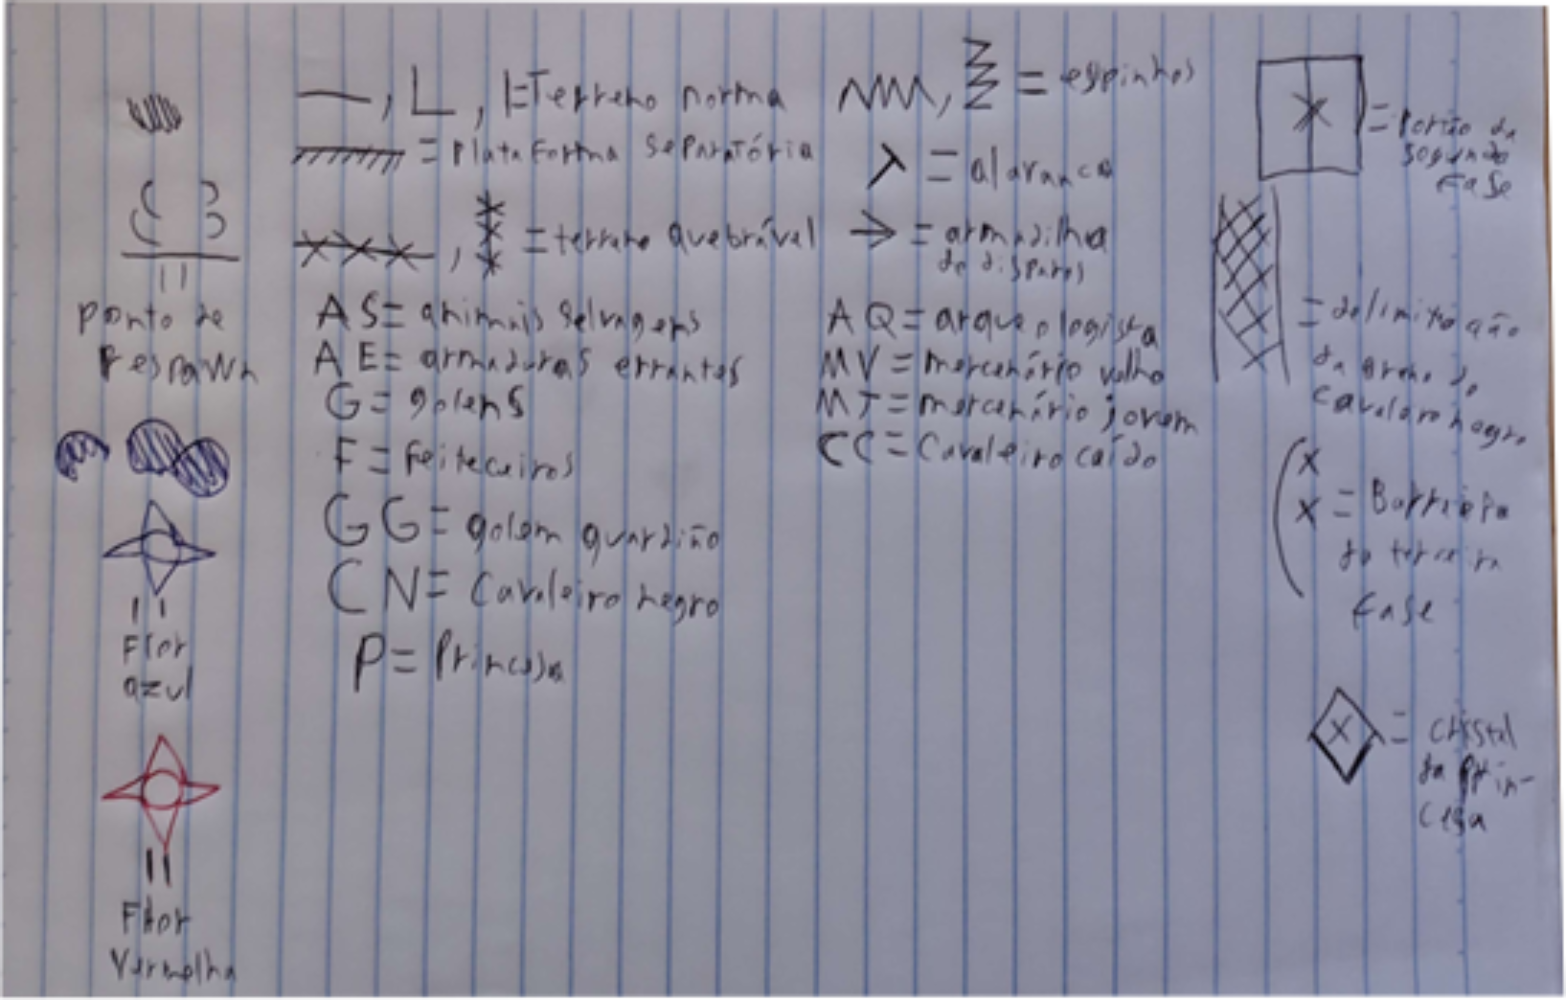 ponto de
respawn
Flor
azul
Flor
Vermelha
—, L, |= Terreno norma
= Plataforma Separatória
, = terreno quebrável
AS= animais selvagens
AE= armaduras errantes
G= golens
F= Feiteceiros
GG= golem guardião
CN= Cavaleiro negro
P= Princesa
, = espinhos
= alavanca
= armadilha
de disparos
AQ= arqueologista
MV= mercenário velho
MJ= mercenário jovem
CC= Cavaleiro caído
= Portão da
segunda
Fase
= delimitação
da arena do
Cavaleiro negro
= Barreira
da terceira
fase
= cristal
da prin-
cesa